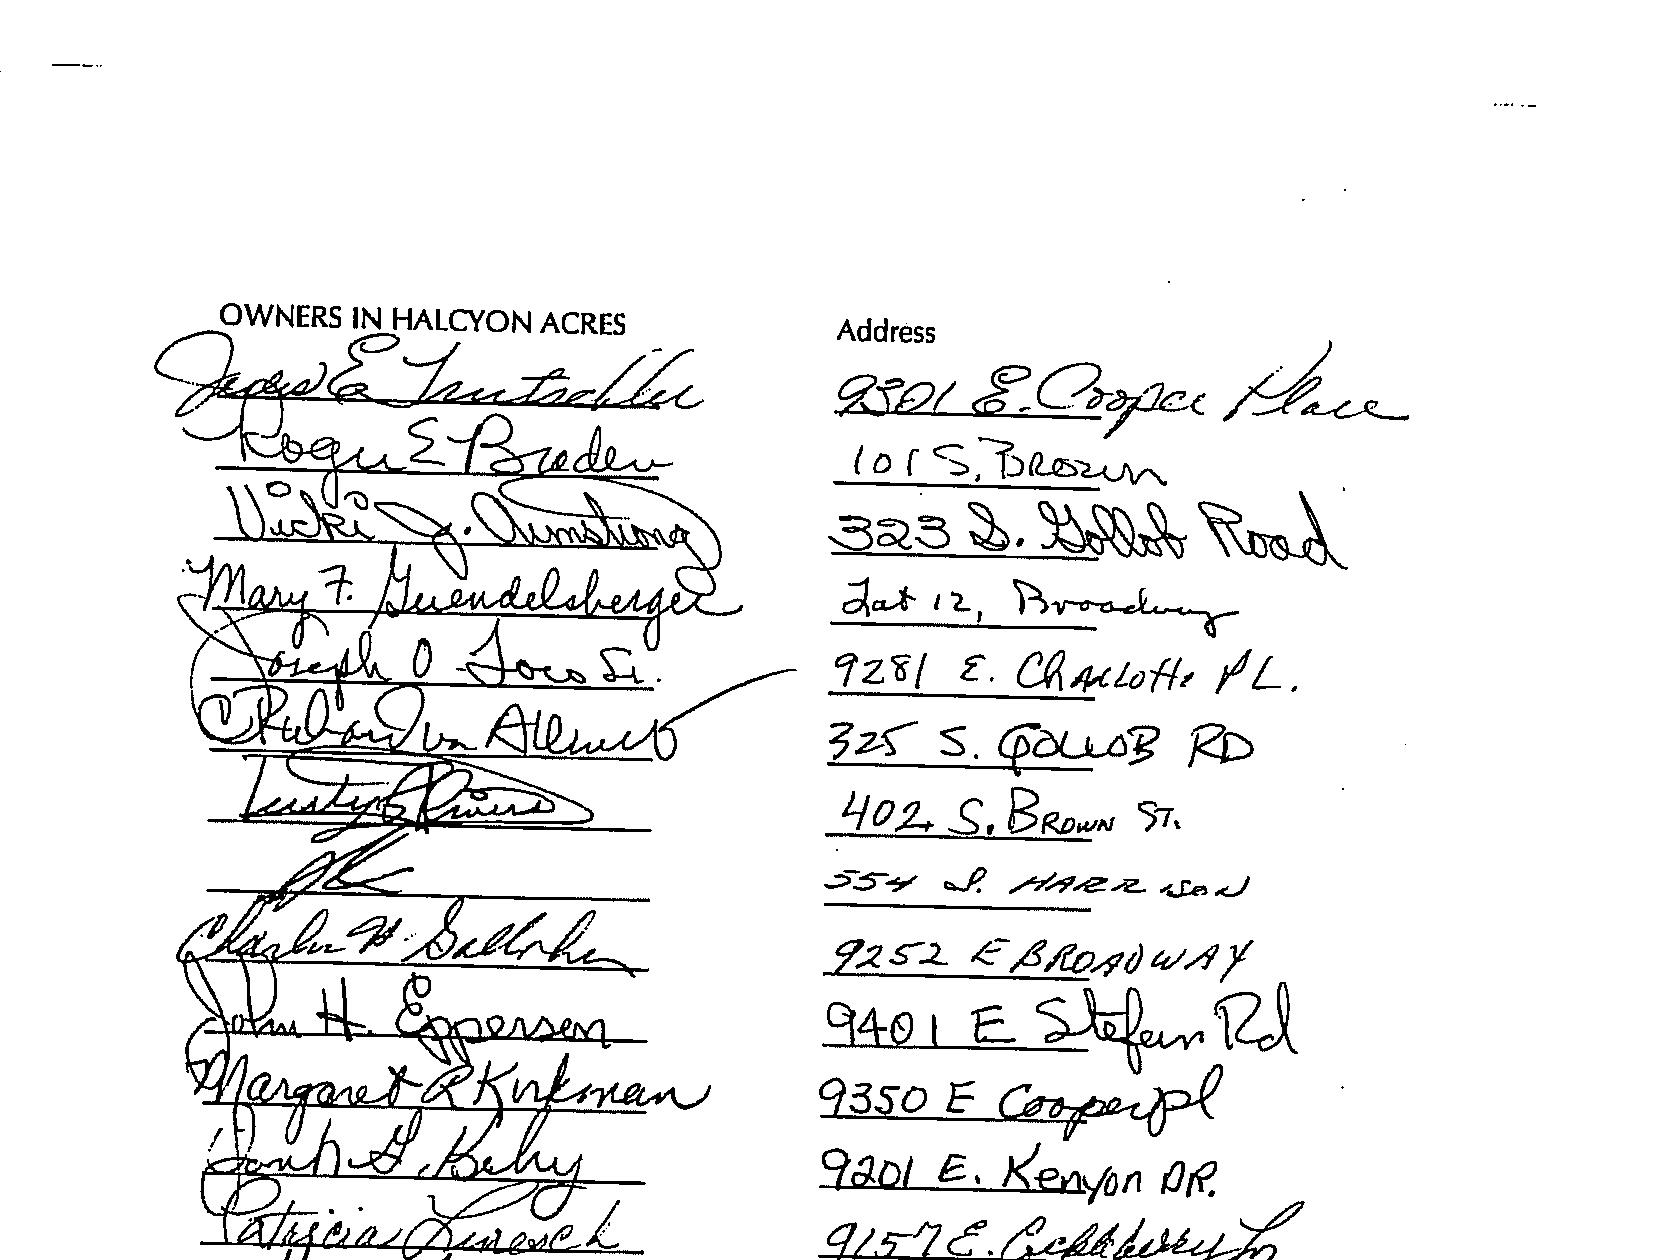 OWNERS IN HALCYON ACRES Address
E Trutschler 9301 E. Cooper Place
Roger E Braden 101 S. Brown
Vicki J. Armstrong 323 S. Gollob Road
Mary F. Guendelsberger Lot 12, Broadway
Joseph O Sr. 9281 E. Charlotte PL.
Richard van Allen 325 S. GOLLOB RD
402 S. BROWN ST.
554 S. HARRISON
Charles W. 9252 E BROADWAY
John H. Epperson 9401 E Stefan Rd
Margaret R Kirkman 9350 E Cooper pl
G. 9201 E. Kenyon DR.
Patricia 9157 E.